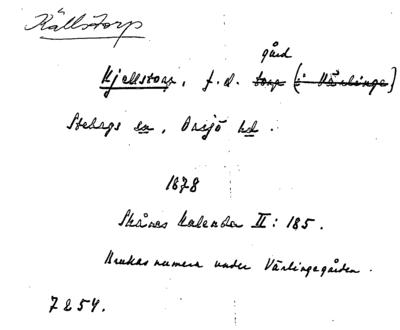 Källstorp
gård
Kjellstorp, f.d. torp (i Värlinge)
Stehags sn, Onsjö hd.
1878
Skånes Kalender II: 185.
Brukas numera under Värlingegården.
7254.